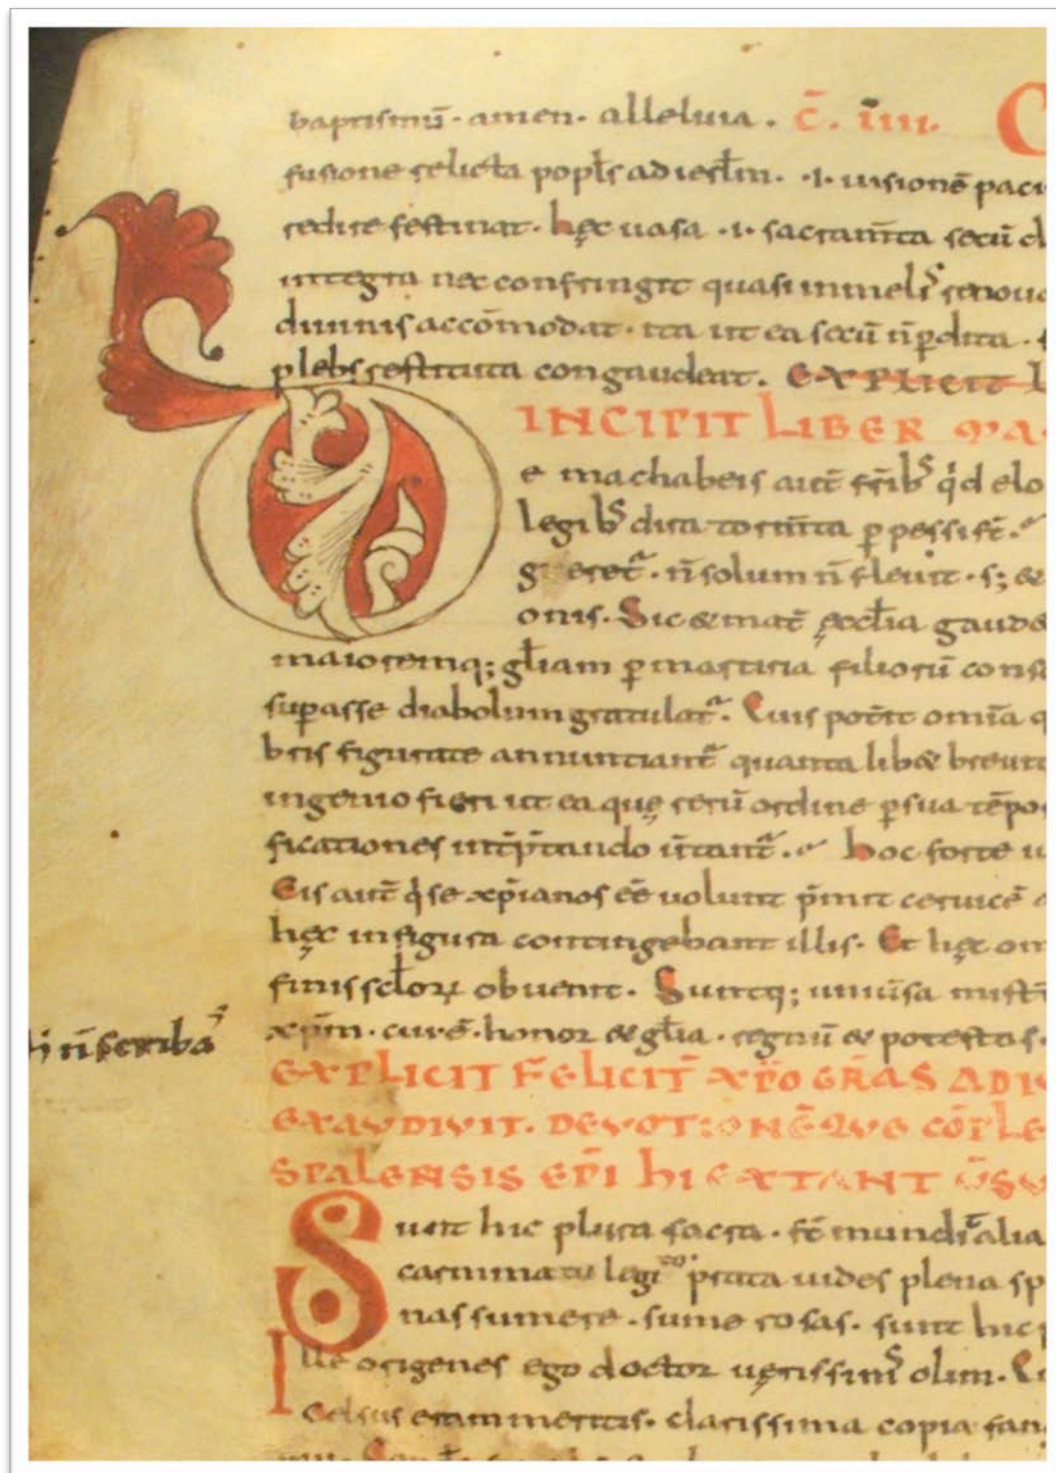 baptismū · amen · alleluia . c̄. īīīī. C
fusione relicta popl̄s ad ierl̄m. ·i· uisionē paci
redire festinat · hęc uasa ·i· sacram̄ta secū d
integra nec confringit quasi in meliꝰ renoua
diuinis accōmodat · ita ut ea secū n̄ ꝑdita ·
plebs restituta congaudeat. EXPLICIT L
INCIPIT LIBER MA
e machabeis aut̄ fr̄ibꝰ qͥd elo
legibꝰ dira torm̄ta ꝑpessi st̄.
onis. Sic & mat̄ ęccl̄ia gaud&
maioremq; gl̄iam ꝑ martiria filiorū cons
suꝑasse diabolum gratulat᷑. Cuis pot̄it om̄ia q
bris figurate annuntiant᷑ quanta lib& breuit
ingenio fieri ut ea quę rerū ordine ꝑ sua tēpo
ficationes int̄p̄tando ī̄tant᷑. hoc forte u
Eis aut̄ qͥ se xp̄ianos eē uolunt p̄mit ceruicē
hęc in figura contingebant illis. Et hęc om
finis sclorꝝ obuenit. Suntq; uniūsa mist̄
n̄ scriba
xp̄m · cui ē · honor & gl̄ia · regnū & potestas ·
EXPLICIT FELICIT̄ XP̄O GR̄AS ADIV
EXAVDIVIT. DEVOTIONĒQVE CŌPLE
SPALENSIS EP̄I HI EXTANT V̄SV
Sunt hic plura sacra · st̄ mundi alia
carmina tu legito prata uides plena sp
nas sumere · sume rosas · sunt hic
Ille origenes ego doctor uęrissimꝰ olim.
Celsus eram meritis. clarissima copia fan